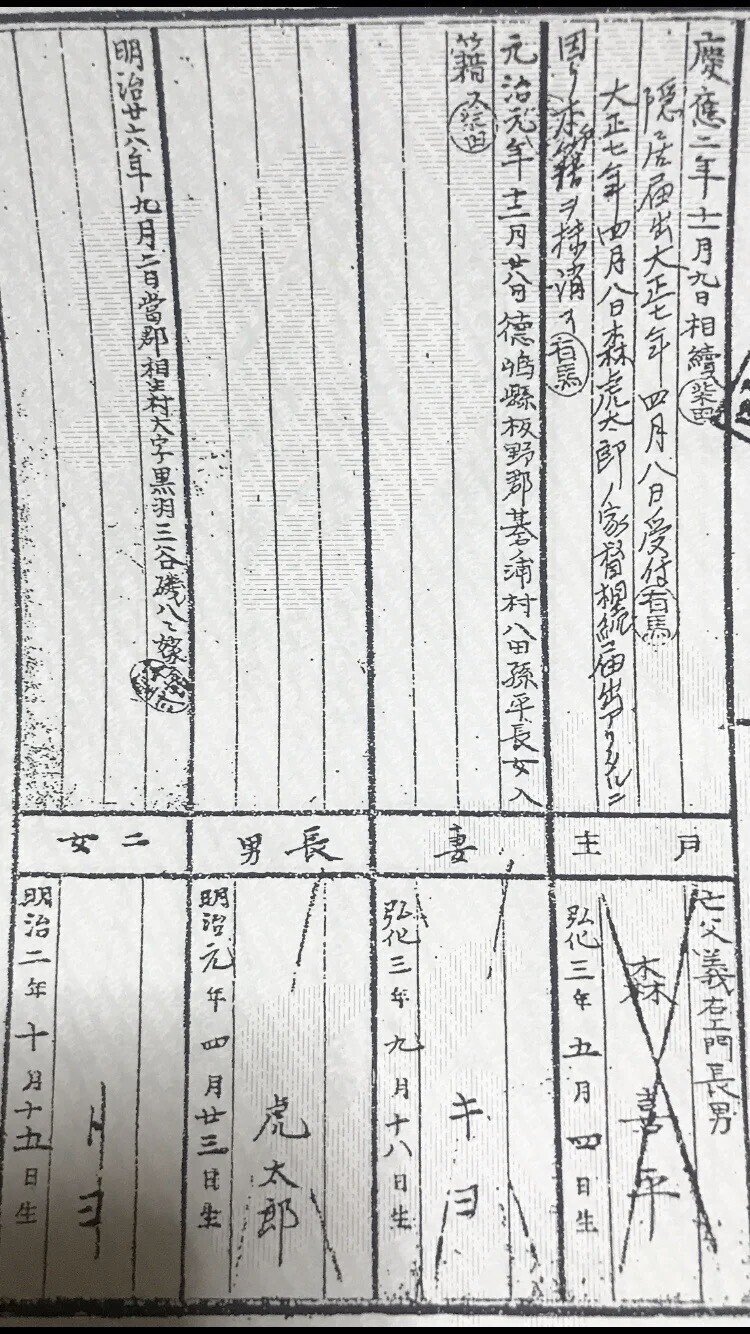 慶應二年十一月九日相續
柴田
隠居届出大正七年四月八日受付
有馬
大正七年四月八日森虎太郎ノ家督相続届出アリタルニ
因リ本戸籍ヲ抹消ス
有馬
戸主
亡父義右エ門長男
森喜平
弘化三年五月四日生
元治元年十二月廿八日德島縣板野郡碁ノ浦村八田孫平長女入
籍
柴田
妻
キヨ
弘化三年九月十八日生
長男
虎太郎
明治元年四月廿三日生
明治廿六年九月二日當郡相生村大字黒羽三谷磯八ニ嫁ス
二女
明治二年十月十五日生